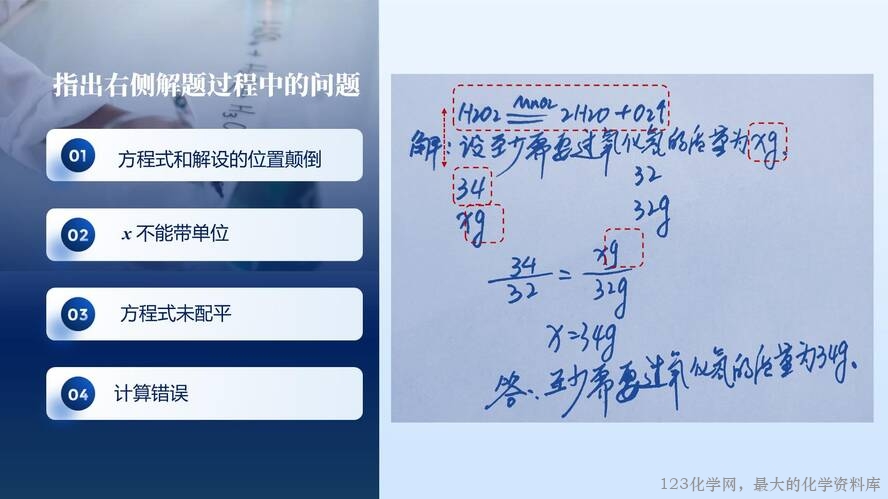 指出右侧解题过程中的问题
01 方程式和解设的位置颠倒
02 x 不能带单位
03 方程式未配平
04 计算错误
H2O2 MnO2 2H2O + O2↑
解：设至少需要过氧化氢的质量为xg.
34 32
xg 32g
34/32 = xg/32g
x=34g
答：至少需要过氧化氢的质量为34g.
123化学网，最大的化学资料库